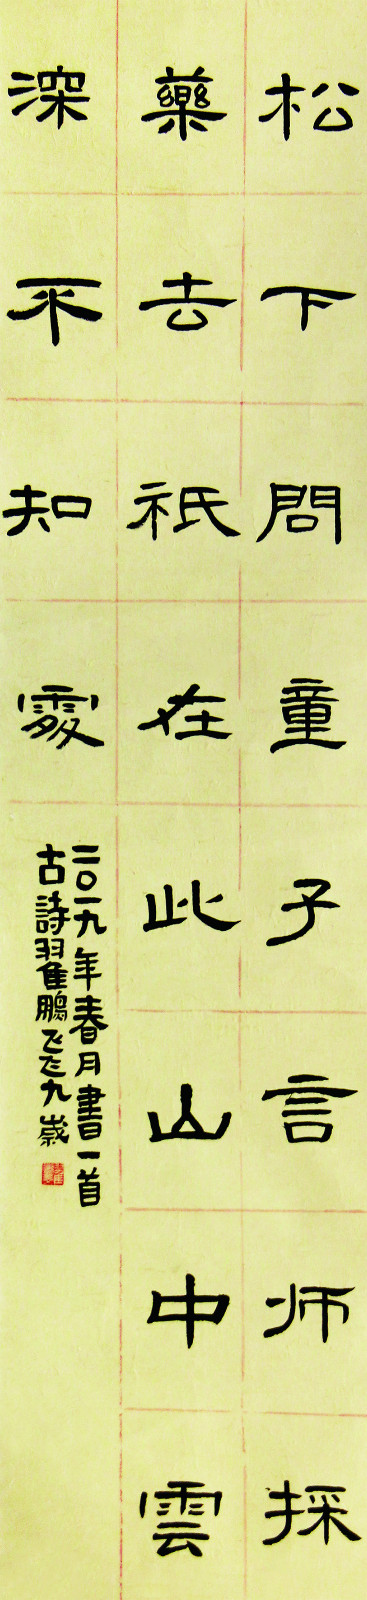 松下問童子言师採
藥去祇在此山中雲
深不知處
二〇一九年春月書一首
古詩翟鵬飞九歲